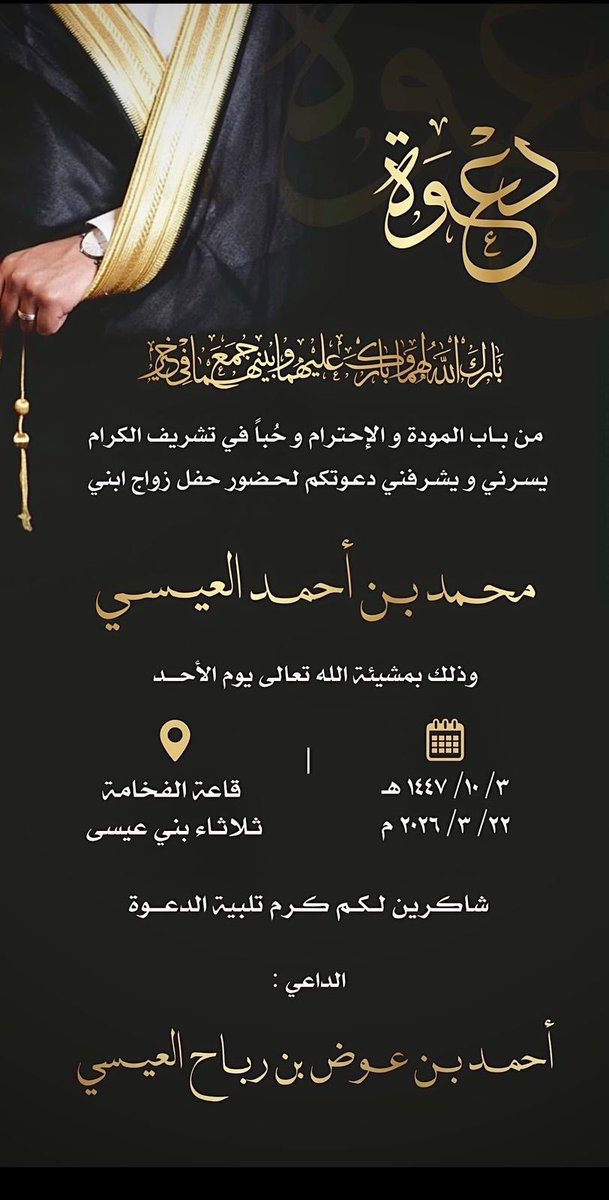 دعوة
بارك الله لهما وبارك عليهما وجمع بينهما في خير
من باب المودة و الإحترام و حُباً في تشريف الكرام
يسرني و يشرفني دعوتكم لحضور حفل زواج ابني
محمد بن أحمد العيسي
وذلك بمشيئة الله تعالى يوم الأحد
٣ / ١٠ / ١٤٤٧ هـ
٢٢ / ٣ / ٢٠٢٦ م
قاعة الفخامة
ثلاثاء بني عيسى
شاكرين لكم كرم تلبية الدعوة
الداعي :
أحمد بن عوض بن رباح العيسي